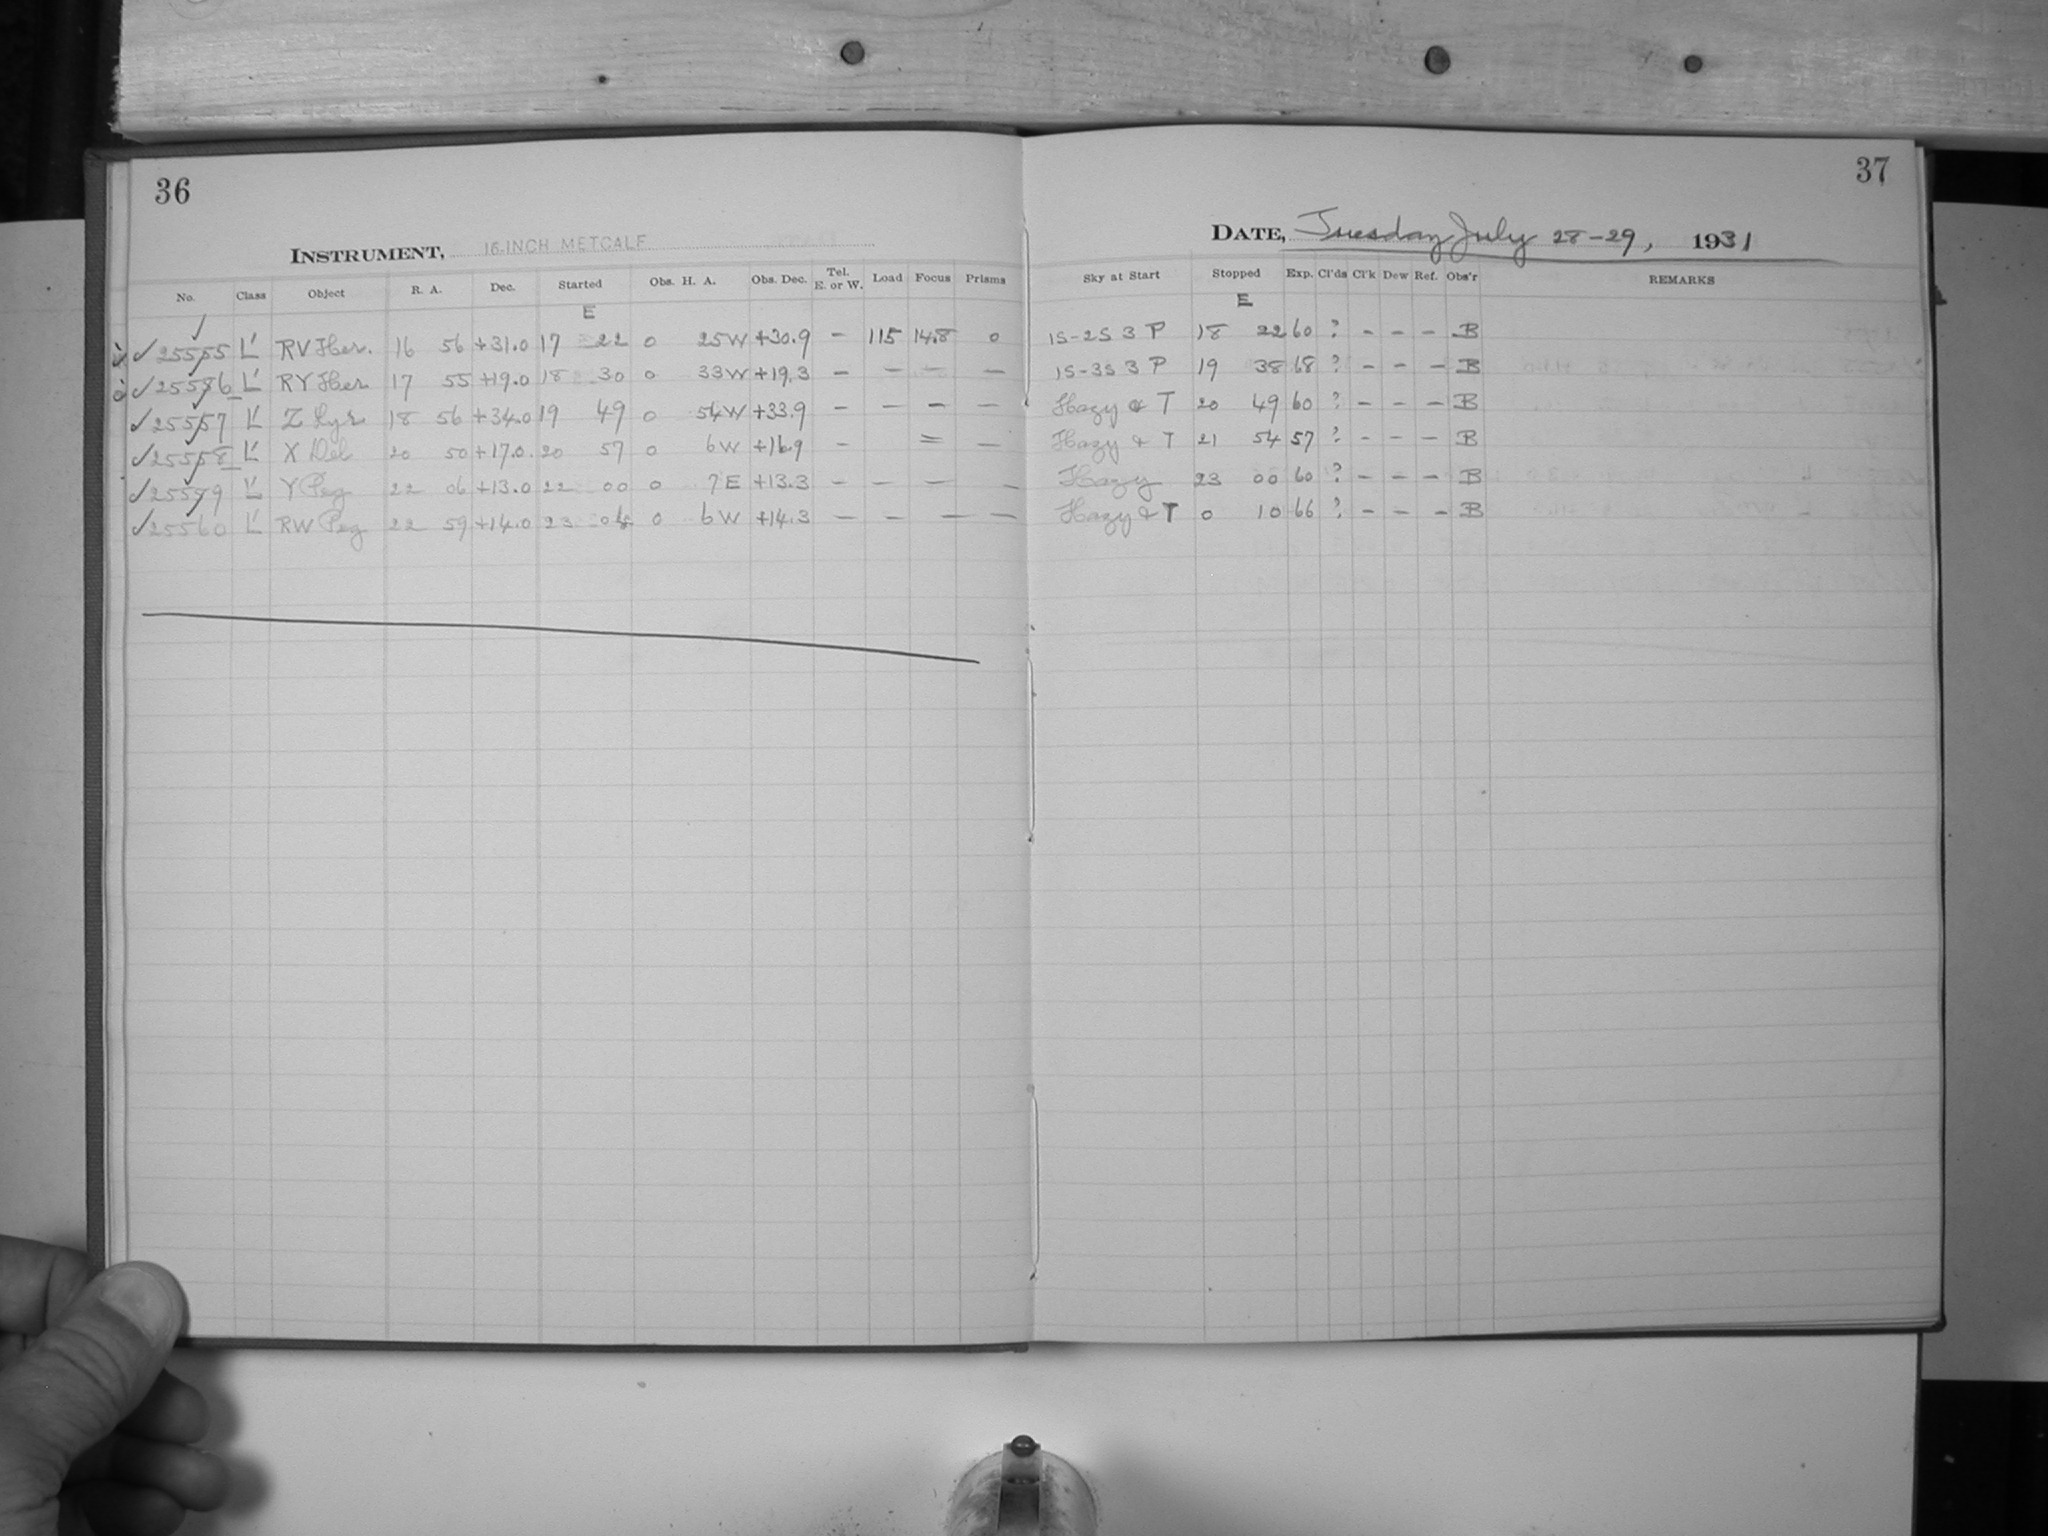 36
INSTRUMENT, 16-INCH METCALF
No. Class Object R. A. Dec. Started Obs. H. A. Obs. Dec. Tel. E. or W. Load Focus Prisms
E
✓ 25555 L' RV Her. 16 56 +31.0 17 22 0 25W +30.9 - 115 14.8 0
✓ 25556 L' RY Her 17 55 +19.0 18 30 0 33W +19.3 - - - -
✓ 25557 L' Z Lyr 18 56 +34.0 19 49 0 54W +33.9 - - - -
✓ 25558 L' X Del 20 50 +17.0 20 57 0 6W +16.9 - = -
✓ 25559 L' Y Peg 22 06 +13.0 22 00 0 7E +13.3 - - - -
✓ 25560 L' RW Peg 22 59 +14.0 23 04 0 6W +14.3 - - - -
37
DATE, Tuesday July 28-29, 1931
Sky at Start Stopped Exp. Cl'ds Cl'k Dew Ref. Obs'r REMARKS
E
1S-2S 3 P 18 22 60 ? - - - B
1S-3S 3 P 19 38 68 ? - - - B
Hazy & T 20 49 60 ? - - - B
Hazy & T 21 54 57 ? - - - B
Hazy 23 00 60 ? - - - B
Hazy & T 0 10 66 ? - - - B